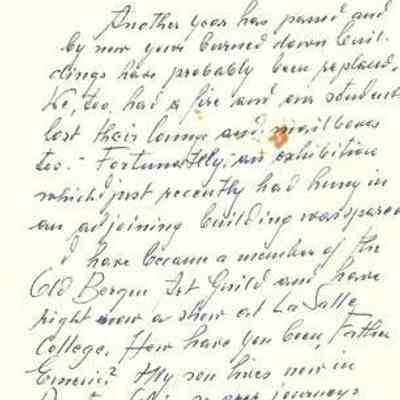 Another year has passed and
by now your burned down buil-
dings have probably been replaced.
We, too, had a fire and our students
lost their lounge and mailboxes
too. - Fortunately, an exhibition
which just recently had hung in
an adjoining building was spared
I have become a member of the
Old Bergen Art Guild and have
right now a show at La Salle
College. How have you been, Father
Emeric? My son lives now in
journeys